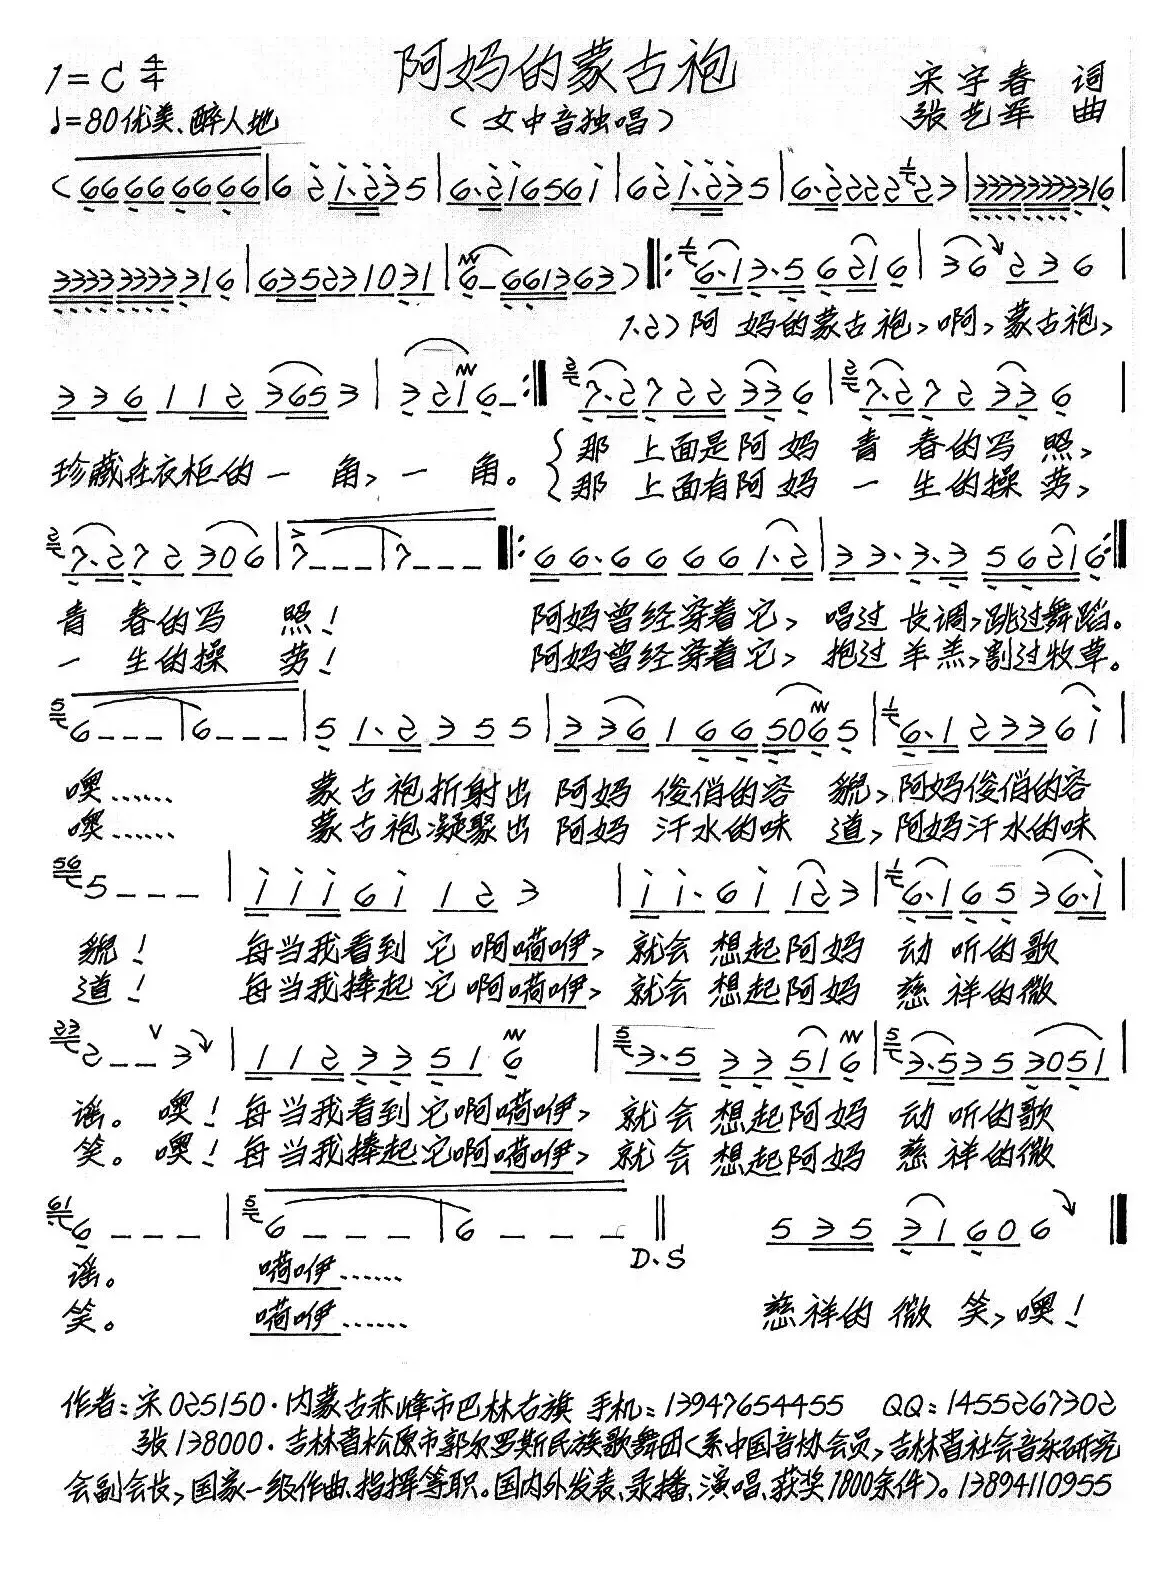 阿妈的蒙古袍
1=C 4/4
宋宇春 词
♩=80 优美、醉人地
（女中音独唱）
张艺军 曲
1.2）阿妈的蒙古袍，啊，蒙古袍，
珍藏在衣柜的一角，一角。
那上面是阿妈青春的写照，
那上面有阿妈一生的操劳，
青春的写照！ 阿妈曾经穿着它，唱过长调，跳过舞蹈。
一生的操劳！ 阿妈曾经穿着它，抱过羊羔，割过牧草。
噢…… 蒙古袍折射出阿妈俊俏的容貌，阿妈俊俏的容
噢…… 蒙古袍凝聚出阿妈汗水的味道，阿妈汗水的味
貌！ 每当我看到它啊嗬咿，就会想起阿妈动听的歌
道！ 每当我捧起它啊嗬咿，就会想起阿妈慈祥的微
谣。噢！每当我看到它啊嗬咿，就会想起阿妈动听的歌
笑。噢！每当我捧起它啊嗬咿，就会想起阿妈慈祥的微
D.S
谣。 嗬咿……
笑。 嗬咿…… 慈祥的微笑，噢！
作者：宋 025150·内蒙古赤峰市巴林右旗 手机：13947654455 QQ：1455267302
张 138000·吉林省松原市郭尔罗斯民族歌舞团（系中国音协会员，吉林省社会音乐研究
会副会长，国家一级作曲、指挥等职。国内外发表、录播、演唱、获奖1800余件）。13894110955